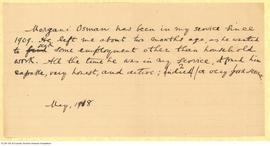 Morgani Osman has been in my service since
1909. He left me about two months ago, as he wanted
to find some employment other than household
work. All the time he was in my service, I found him
capable, very honest, and active;
May, 1918.